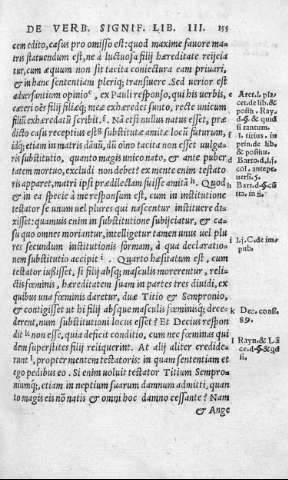 DE VERB. SIGNIF. LIB. III. 155
cem edito, casus pro omisso est: quod maxime fauore ma-
tris statuendum est, ne à luctuosa filij hæreditate reijcia
tur, cum æquum non sit tacita coniectura eam priuari,
& in hanc sententiam pleriq; transiuere. Sed uerior est
aduersantium opinio, ex Pauli responso, qui his uerbis,
cæteri oẽs filij filiæq́; meæ exhæredes sunto, recte unicum
filiũ exhæredatũ scribit. Nã etsi nullus natus esset, præ
dicto casu receptius est substitutæ amitæ locũ futurum,
idq́; etiam in matris dãnũ, dũ oĩno tacita non esset uulga-
ris substitutio, quanto magis unico nato, & ante puber
tatem mortuo, excludi non debet? ex mente enim testato
ris apparet, matri ipsi prædilectam fuisse amitã. Quod
& in ea specie à me responsum est, cum in institutione
testator se unum uel plures qui nascentur instituere di-
xisset: quamuis enim in substitutione subijciatur, & ca-
su quo omnes moriantur, intelligetur tamen unus uel plu
res secundum institutionis formam, à qua declaratio-
nem substitutio accipit. Quarto hæsitatum est, cum
testator iussisset, si filij absq; masculis morerentur, reli-
ctis fœminis, hæreditatem suam in partes tres diuidi, ex
quibus una fœminis daretur, duæ Titio & Sempronio,
& contigisset ut hi filij absque masculis fœminisq́; dece-
derent, num substitutioni locus esset? Et Decius respon
dit non esse, quia deficit conditio, cum nec fœminas qui
dem superstites filij reliquerint. At alij aliter credide-
runt, propter mentem testatoris: in quam sententiam et
ego pedibus eo. Si enim uoluit testator Titium Sempro-
niumq́;, etiam in neptium suarum damnum admitti, quan
to magis eis nõ natis & omni hoc damno cessante? Nam
& Ange
e Aret. l. pla-
cet. de lib. &
posth. Ray.
f l. titius. in
prin. de lib.
& posthu.
g Barto. d. l. j.
h Bart.
i l. j. C. de im
pub.
k Dec. cons.
89.